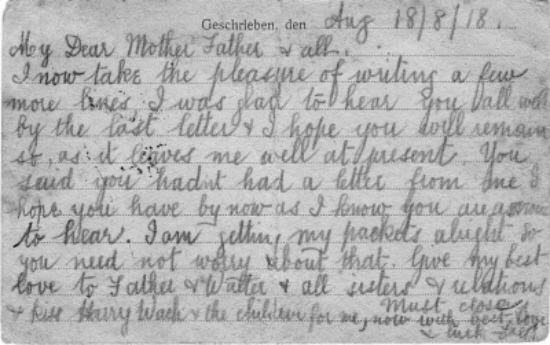 Geschrieben, den Aug 18/8/18.
My Dear Mother Father & all.
I now take the pleasure of writing a few
more lines I was glad to hear you all well
by the last letter & I hope you will remain
so, as it leaves me well at present. You
said you hadnt had a letter from me I
hope you have by now as I know you are anxious
to hear. I am getting my packets alright so
you need not worry about that. Give my best
love to Father & Walter & all sisters & relations
& kiss Harry Wack & the children for me, Must close
now with best love
& luck